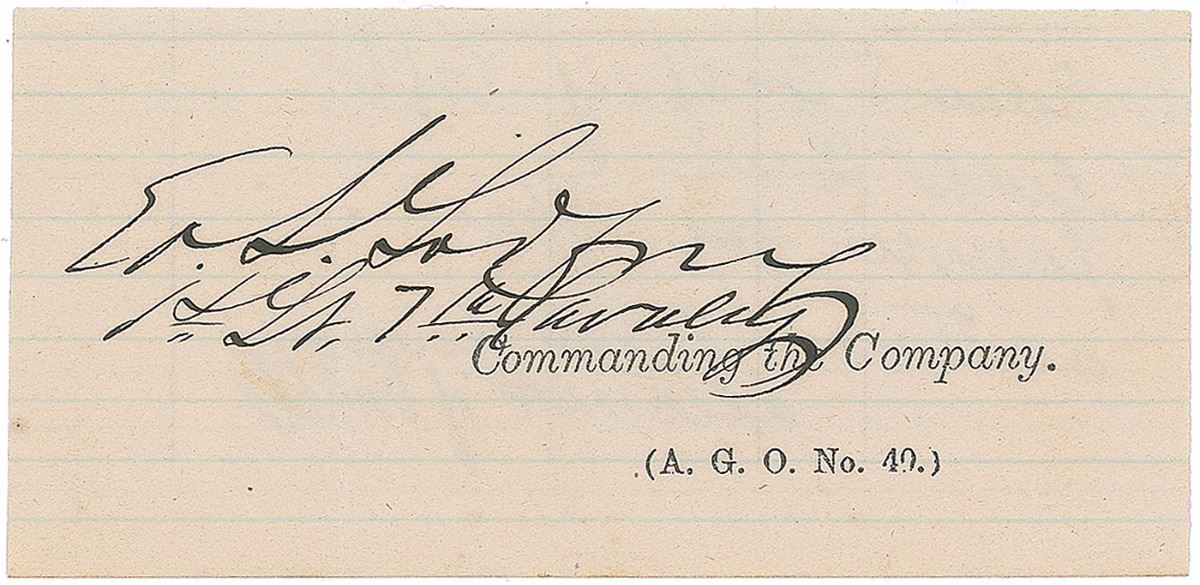 E. S. Godfrey
1st Lt. 7th Cavalry
Commanding the Company.
(A. G. O. No. 49.)